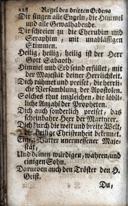 218 Regel des dritten Ordens
Die singen alle Engeln, die Himmel
und alle Gewalthende.
Die schreien zu die Cherubin und
Seraphin, mit unablässigen
Stimmen.
Heilig, heilig, heilig ist der Herr
Gott Sabaoth.
Himmel und Erd seind erfüllet, mit
der Majestät deiner Herrlichkeit.
Dich rühmet und preiset, die herrli-
che Versamblung der Apostolen.
Solches thut imgleichen, die löbli-
che Anzahl der Propheten.
Dich auch sonderlich preiset, das
scheinbahre Heer der Martyrer.
Dich durch die weit und breite Welt,
die heilige Christenheit bekennt.
Einen Vatter unermessener Maje-
stät.
Und deinen würdigen, wahren, und
einigen Sohn.
Darneben auch den Tröster den H.
Geist.
Du,